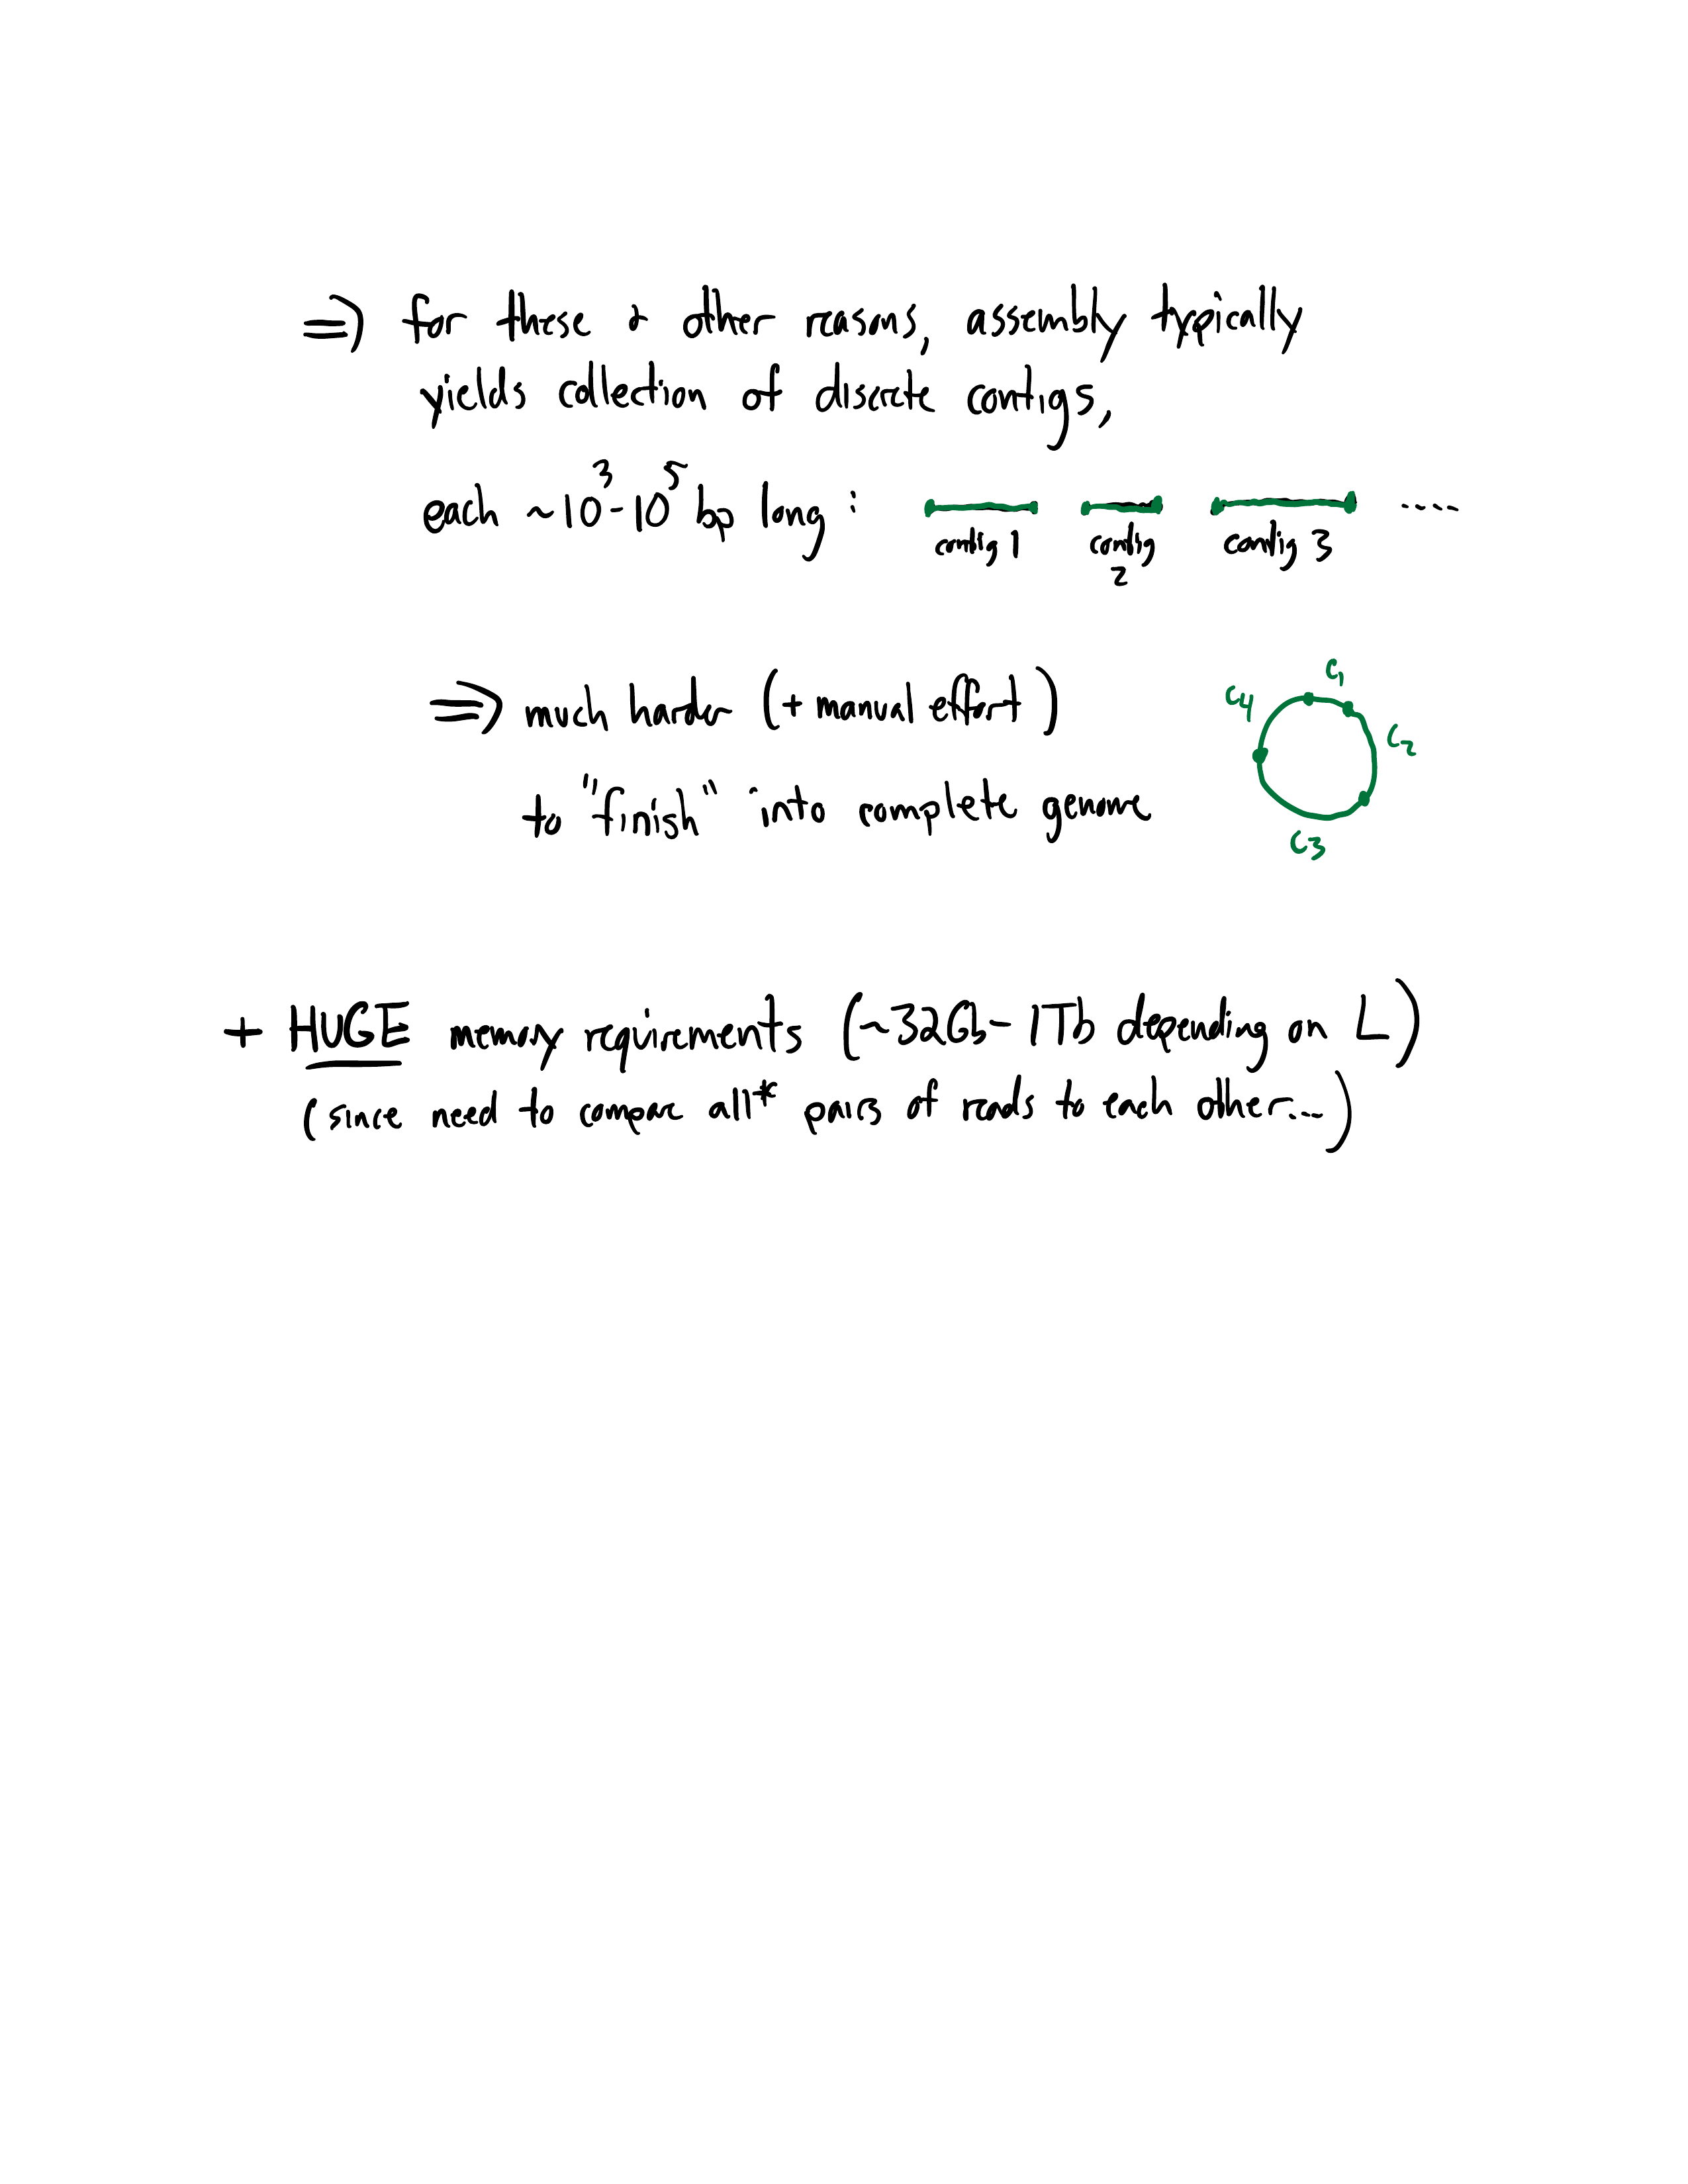 ⇒ for these & other reasons, assembly typically
yields collection of discrete contigs,
each ~10³-10⁵ bp long :
contig 1
contig
2
contig 3
....
⇒ much harder (+ manual effort)
to "finish" into complete genome
C1
C2
C3
C4
+ HUGE memory requirements (~32Gb - 1Tb depending on L)
(since need to compare all* pairs of reads to each other...)